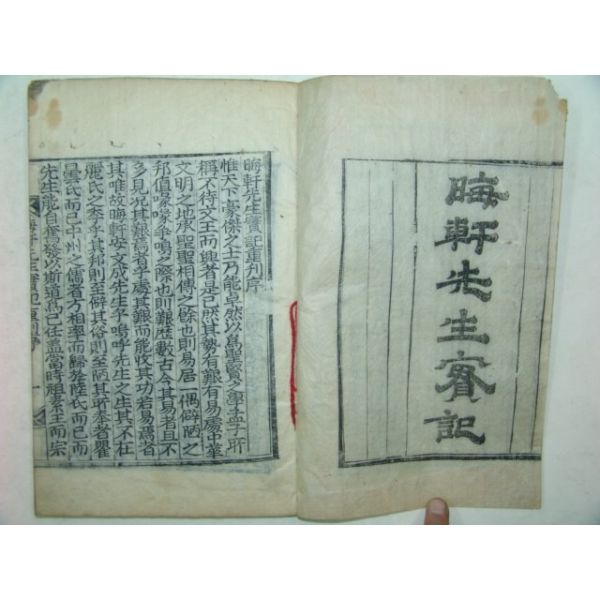 晦軒先生實記
晦軒先生實記重刊序
惟天下豪傑之士乃能卓然以爲聖賢之學孟子所
稱不待文王而興者是已然其勢有艱有易處中華
文明之地承聖聖相傳之餘也則易居一偶僻陋之
邦値蒙孚鳴之際也則艱歷數古今其易者且不
多見況其艱焉者乎處其艱而能收其功若易焉者
其唯故晦軒安文成先生乎嗚呼先生之生其不在
麗氏之季乎其邦則至僻其俗則至陋其所奉者瞿
曇氏而已中州之儒者方相率而歸於陸氏而已而
先生能自奮發以斯道爲己任盖當時祖素王而宗